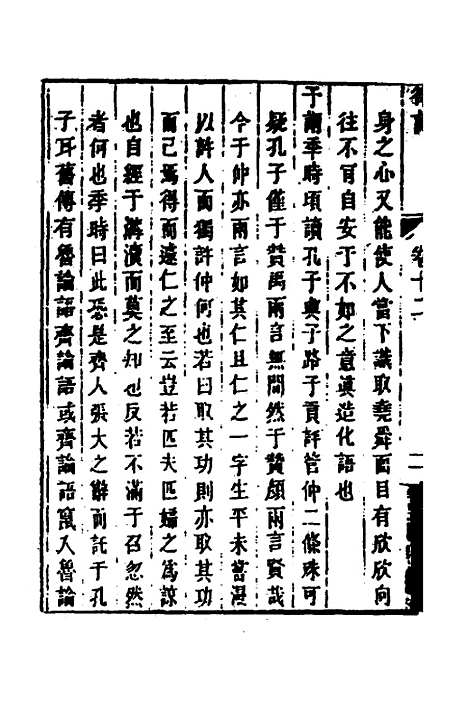 身之心又能使人當下識取堯舜面目有欣欣向
往不肎自安于不如之意眞造化語也
于謂季時頃讀孔子與子路子貢評管仲二條殊可
疑孔子僅于贊禹兩言無間然于贊顏兩言賢哉
今于仲亦兩言如其仁且仁之一字生平未嘗漫
以許人而獨許仲何也若曰取其功則亦取其功
而已焉得而遠仁之至云豈若匹夫匹婦之為諒
也自經于溝瀆而莫之知也反若不滿于召忽然
者何也季時曰此恐是齊人張大之辭而託于孔
子耳舊傳有魯論語齊論語或齊論語竄入魯論
卷十二
二